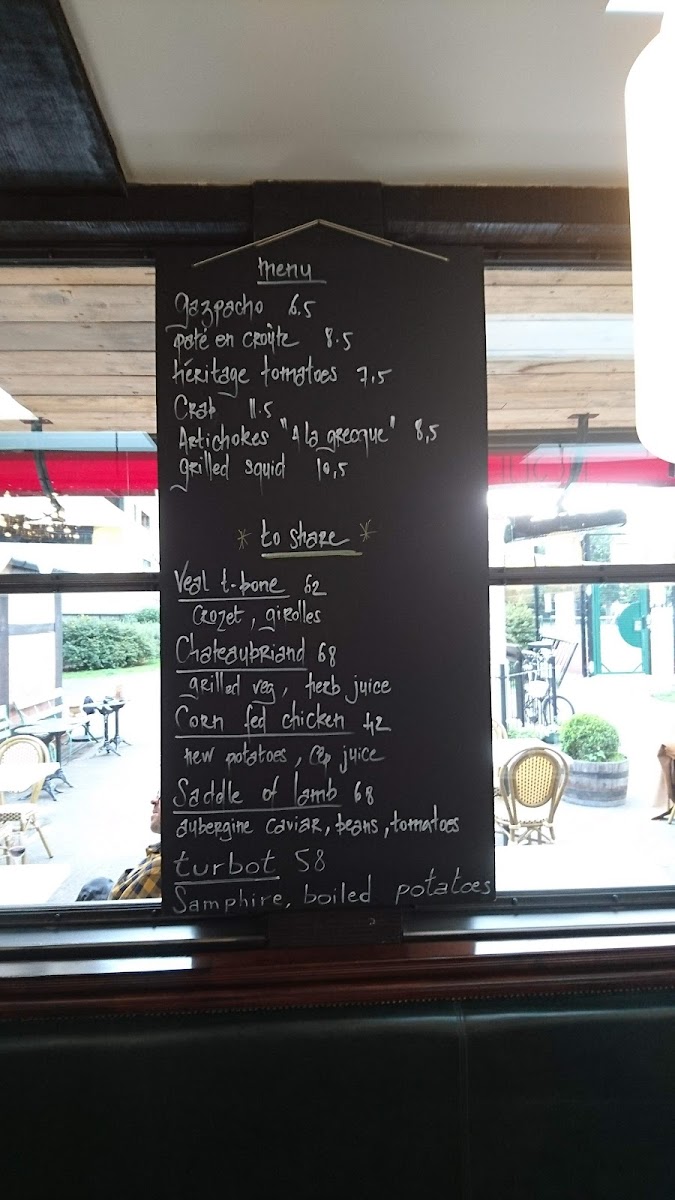 menu
gazpacho 6.5
paté en croûte 8.5
héritage tomatoes 7,5
Crab 11.5
Artichokes "A la grecque" 8,5
grilled squid 10,5
* to share *
Veal t-bone 62
Crozet, girolles
Chateaubriand 68
grilled veg, herb juice
Corn fed chicken 42
new potatoes, Cep juice
Saddle of lamb 68
aubergine caviar, beans, tomatoes
turbot 58
Samphire, boiled potatoes